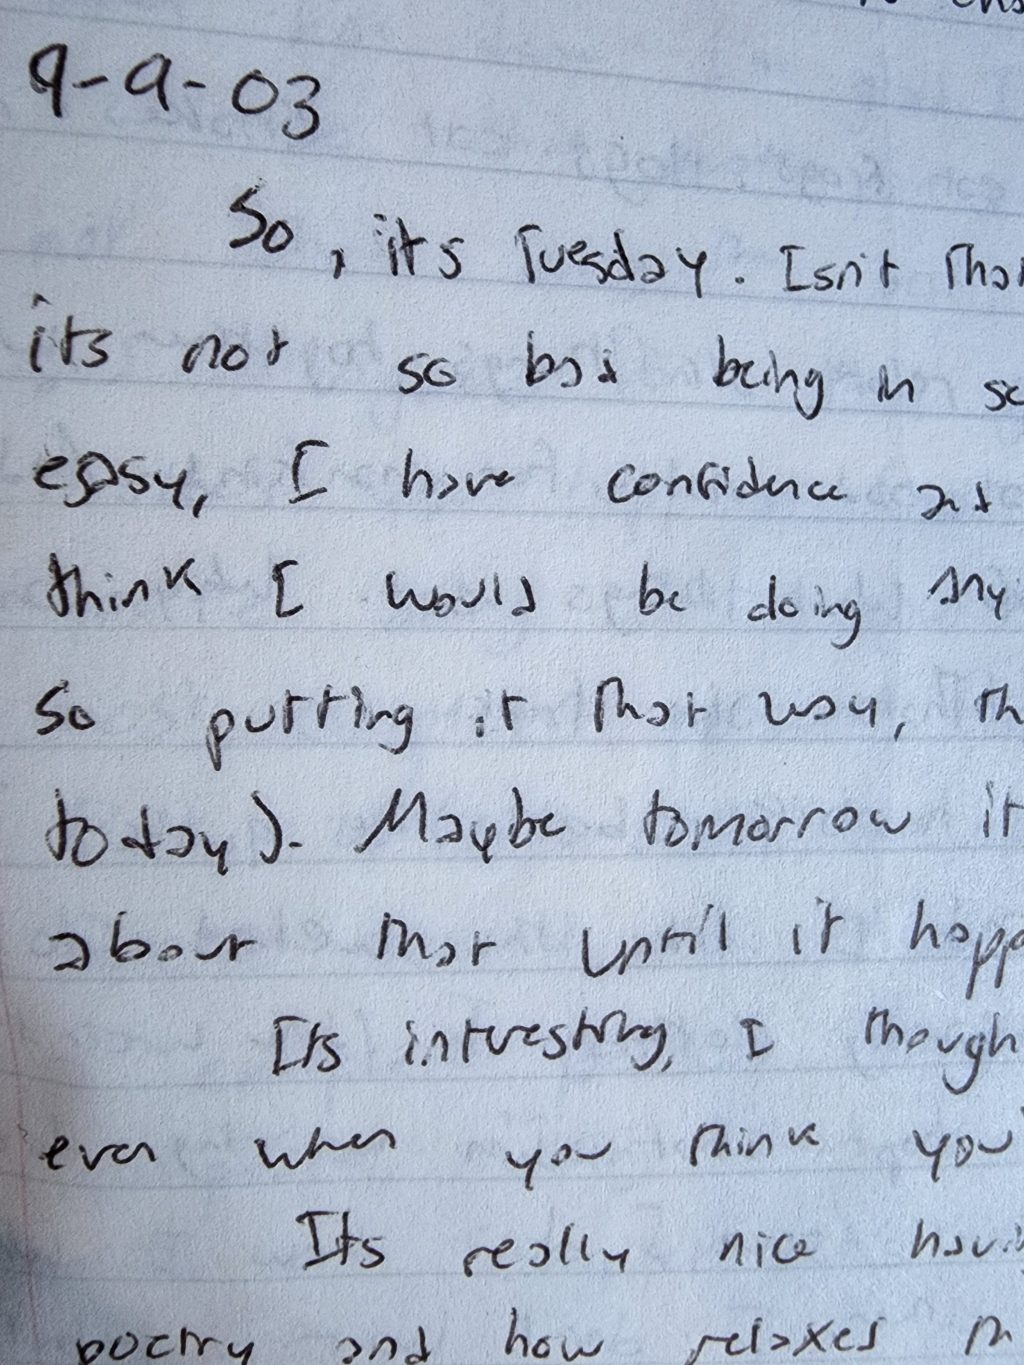 9-9-03
So, its Tuesday. Isn't
its not so bad being in
easy, I have confidence and
think I would be doing any
so putting it that way, th
today). Maybe tomorrow it
about that until it happ
Its interesting, I though
even when you think you
Its really nice havi
poetry and how relaxes